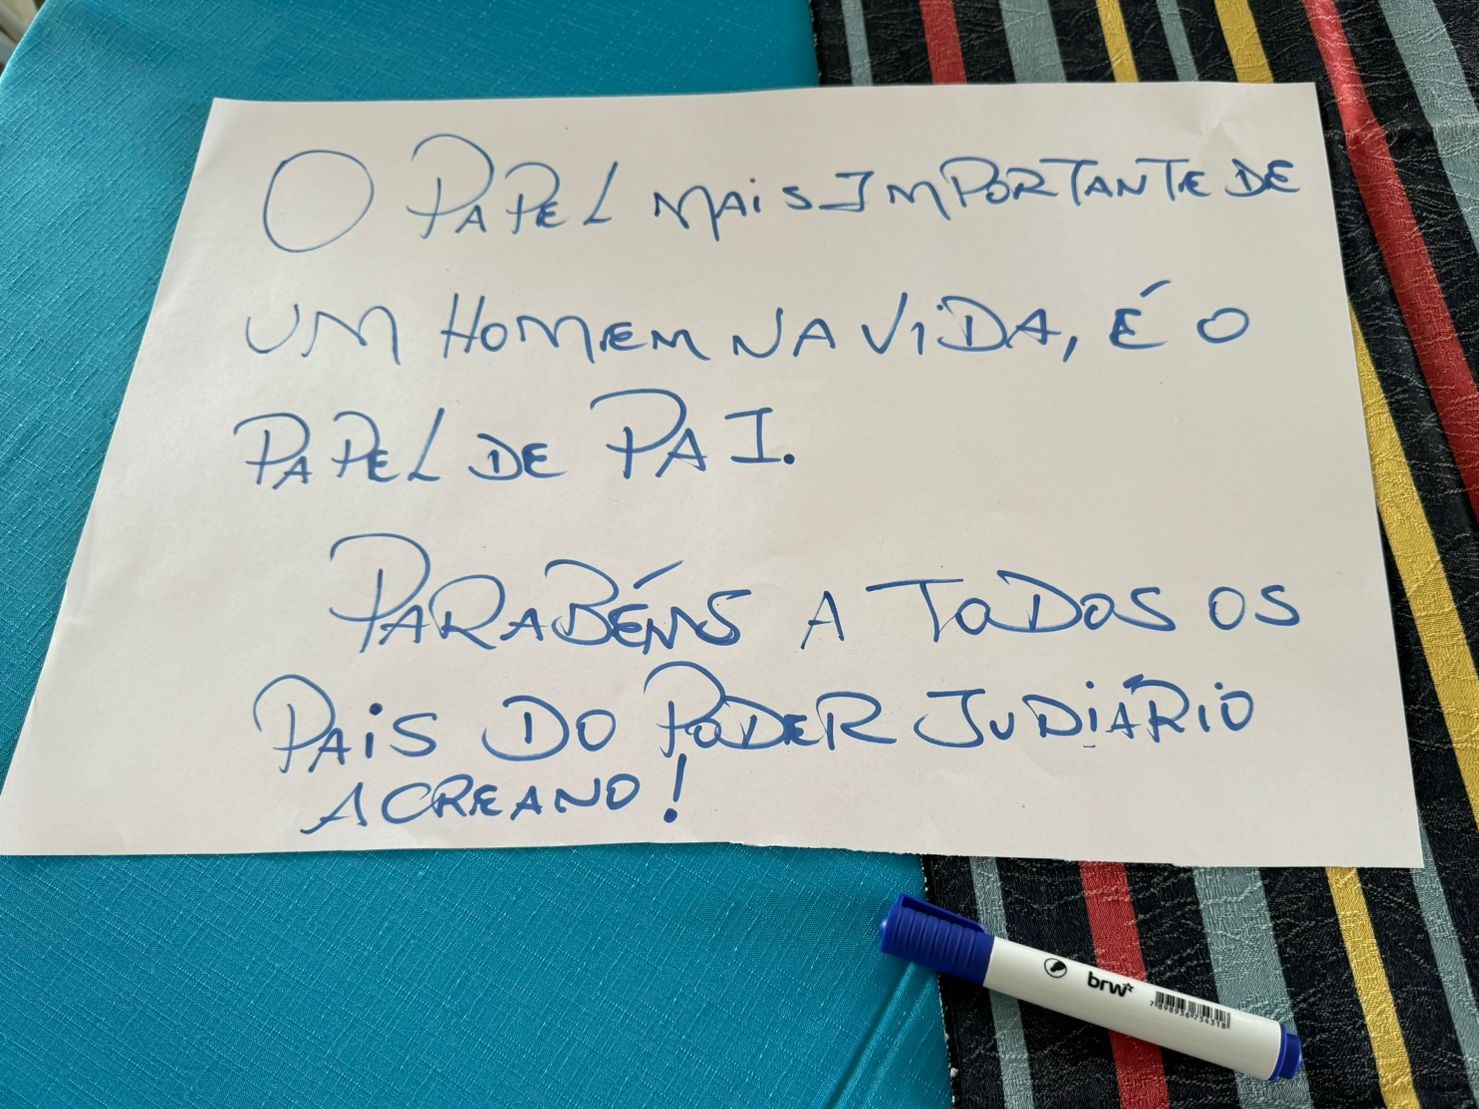 O PAPEL MAIS IMPORTANTE DE
UM HOMEM NA VIDA, É O
PAPEL DE PAI.
PARABÉNS A TODOS OS
PAIS DO PODER JUDIÁRIO
ACREANO!
brw
7898936754318